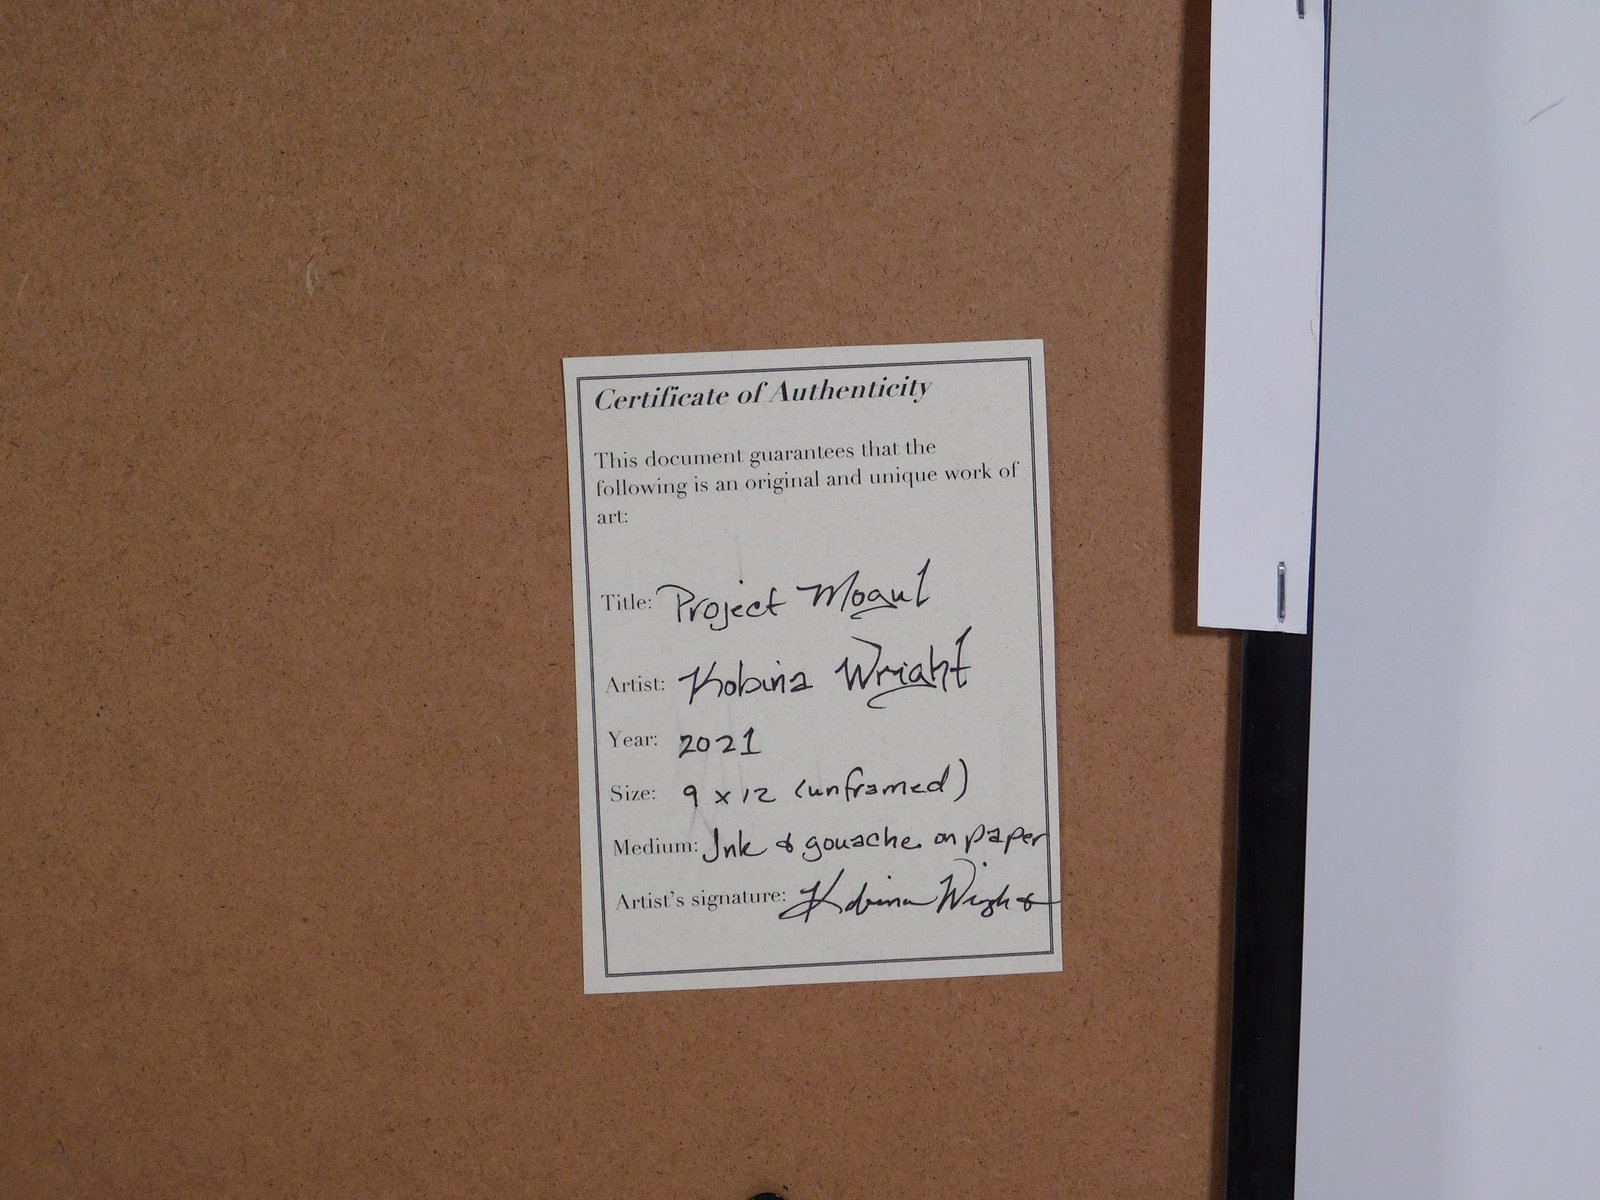 Certificate of Authenticity
This document guarantees that the
following is an original and unique work of
art:
Title: Project Mogul
Artist: Kobina Wright
Year: 2021
Size: 9 x 12 (unframed)
Medium: Ink & gouache on paper
Artist's signature: Kobina Wright